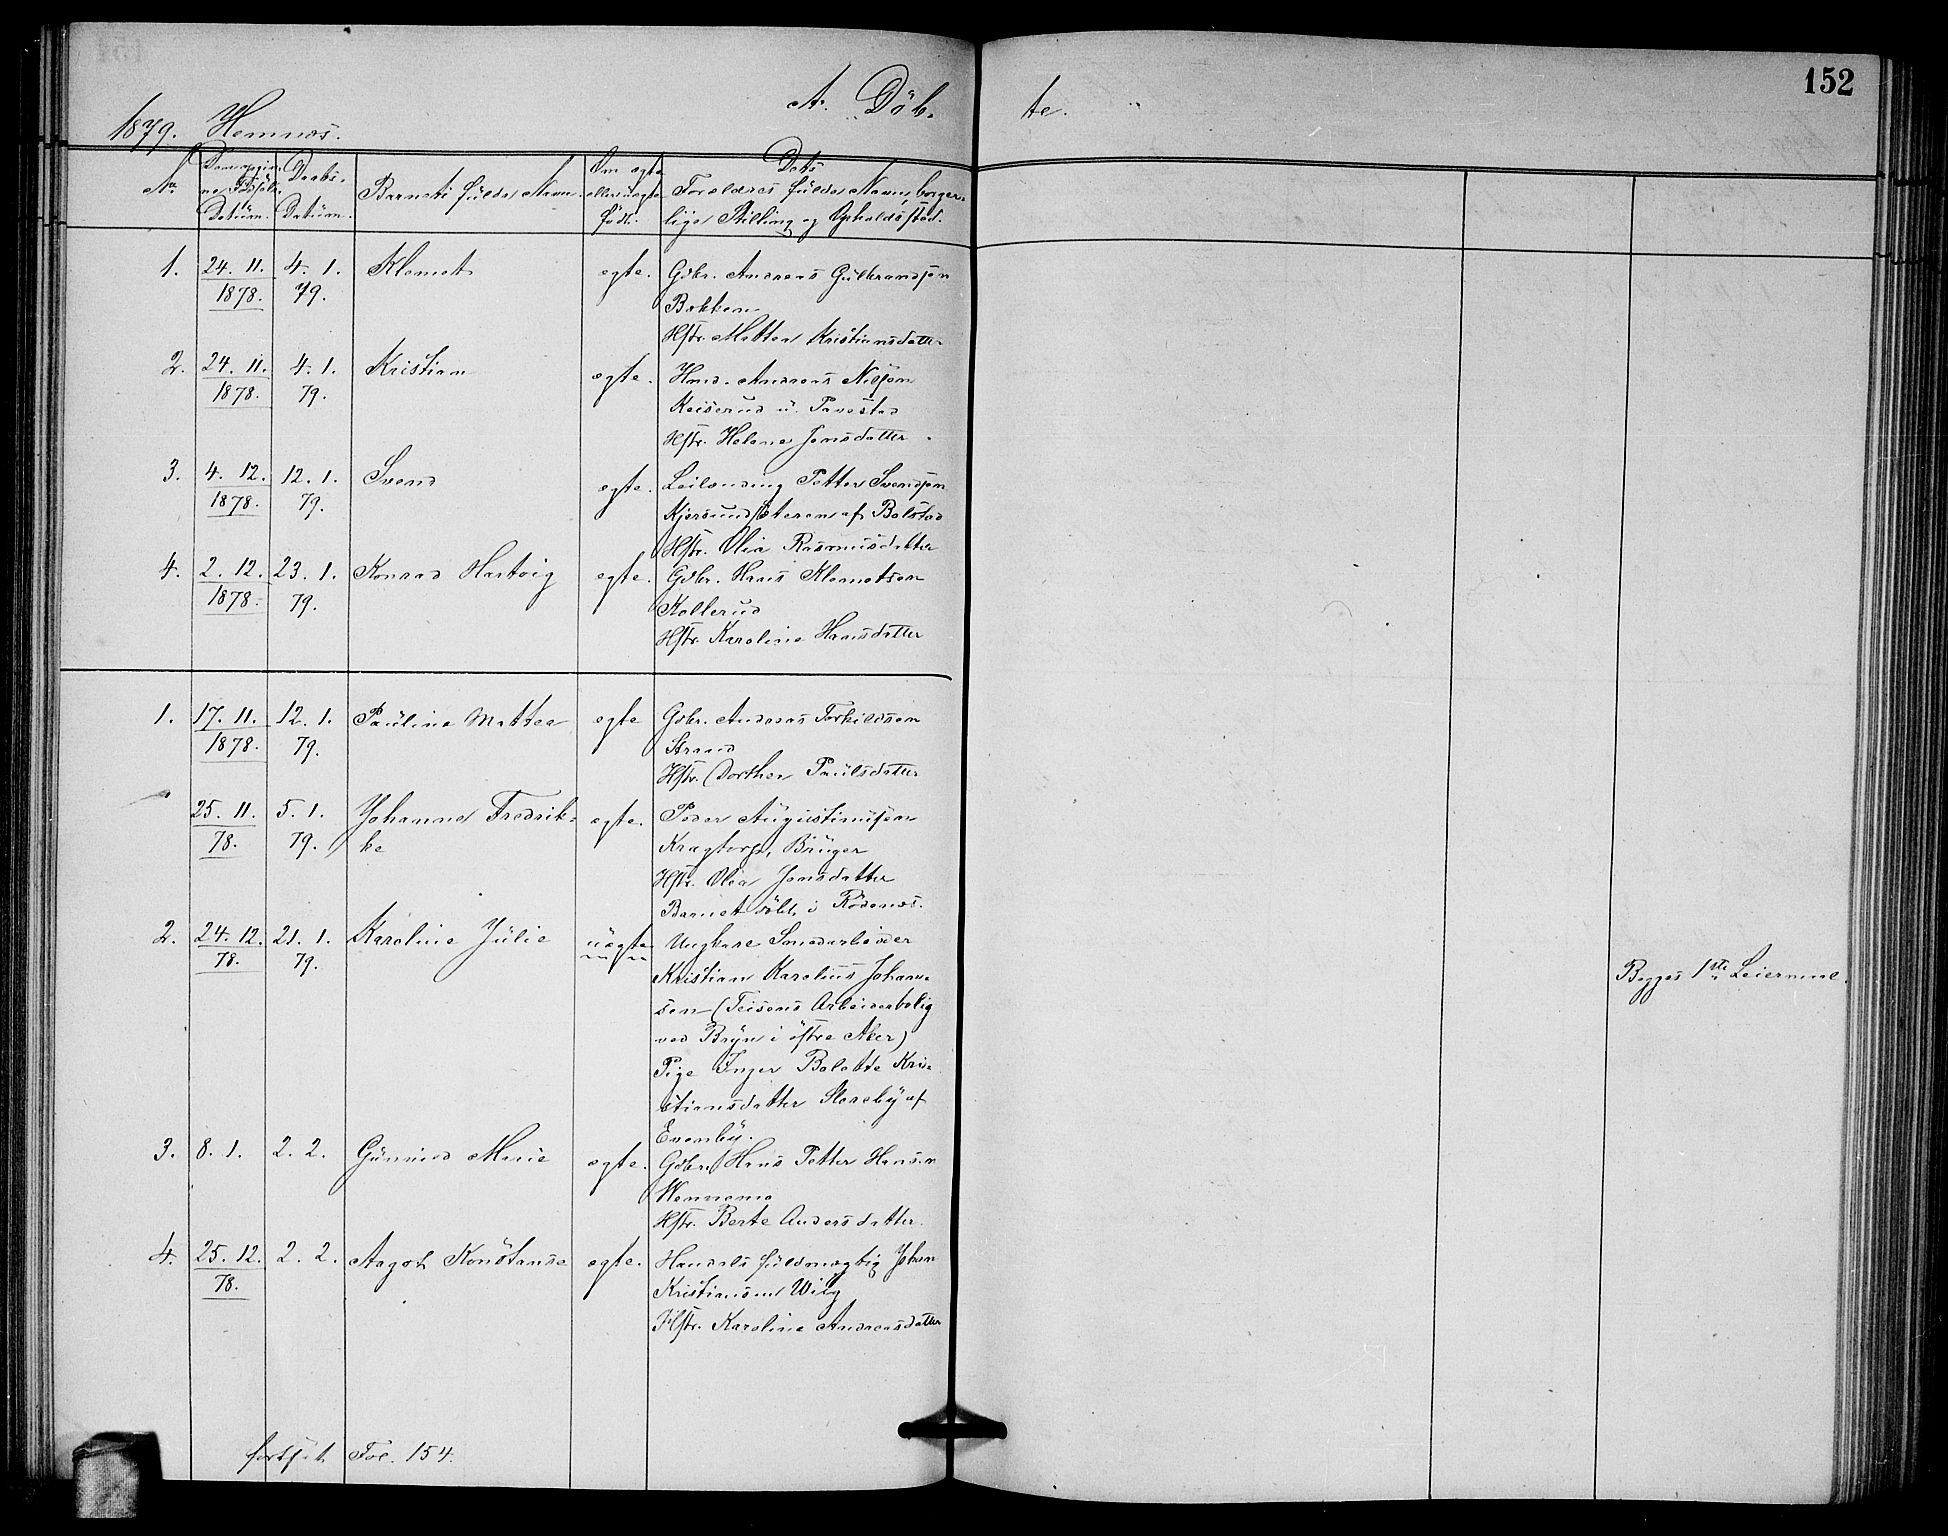 152
A. Döb. te.
1879. Hemnæs.
No. Datum. Daabs-Datum. Barnets fulde Navn. Om egte eller uegte født. Dets Forældres fulde Navn, borgerlige Stilling og Opholdssted.
1. 24. 11. 1878. 4. 1. 79. Klemet egte. Gdbr. Andreas Gulbrandsen
Bakken
Hstr. Mathea Kristiansdatter
2. 24. 11. 1878. 4. 1. 79. Kristian egte. Hmd. Andreas Nilsen
Keiserud u. Tavestad
Hstr. Helene Jensdatter
3. 4. 12. 1878. 12. 1. 79. Svend egte. Leilænding Petter Svendsen
Kjersund østeren af Bolstad
Hstr. Olia Rasmusdatter
4. 2. 12. 1878. 23. 1. 79. Konrad Hartvig egte. Gdbr. Hans Klemetsen
Kollerud
Hstr. Karoline Hansdatter
1. 17. 11. 1878. 12. 1. 79. Pauline Mattea egte Gdbr. Andreas Torkildsen
Strand
Hstr. Dorthea Paulsdatter
25. 11. 78. 5. 1. 79. Johanne Fredrikke egte. Peder Augustinusen
Kragtorp, Bruger
Hstr. Olea Jensdatter
Barnet døbt i Rødenæs.
2. 24. 12. 78. 21. 1. 79. Karoline Julie uegte Ungkarl Smedarbeider
Kristian Karelius Johan-
sen (Teisens Arbeiderbolig
ved Bryn i østre Aker)
Pige Inger Bolette Kri-
stiansdatter Skoreby af
Evenby.
Begges 1ste Leiermaal.
3. 8. 1. 2. 2. Gunnild Marie egte. Gdbr. Hans Petter Hansen
Wennemo
Hstr. Berte Andersdatter.
4. 25. 12. 78. 2. 2. Aagot Konstanse egte. Handelsfuldmægtig Johan
Kristiansen Wiig
Hstr. Karoline Andreasdatter
fortsat Fol. 154.